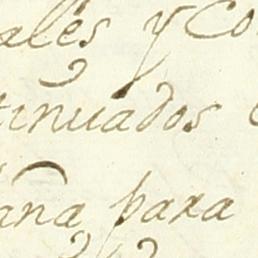 ales y Co
tinuados
ana para